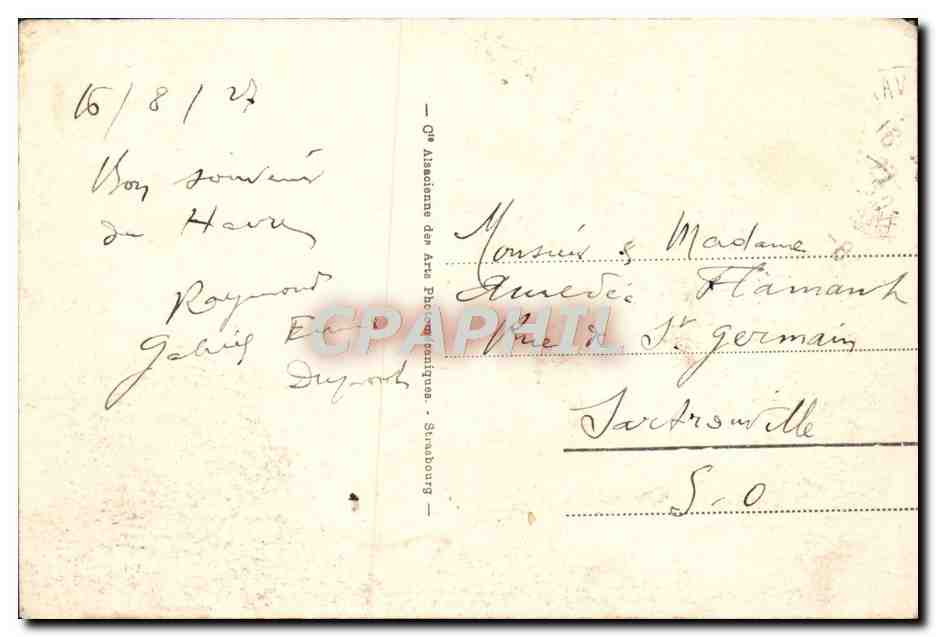 16/8/27
Bon souvenir
du Havre
Raymond
Gabriel
Dupont
— Cie Alsacienne des Arts Photomécaniques. - Strasbourg —
Monsieur & Madame
Amédée Flamant
Rue de St germain
Sartrouville
S-O
CPAPHIL